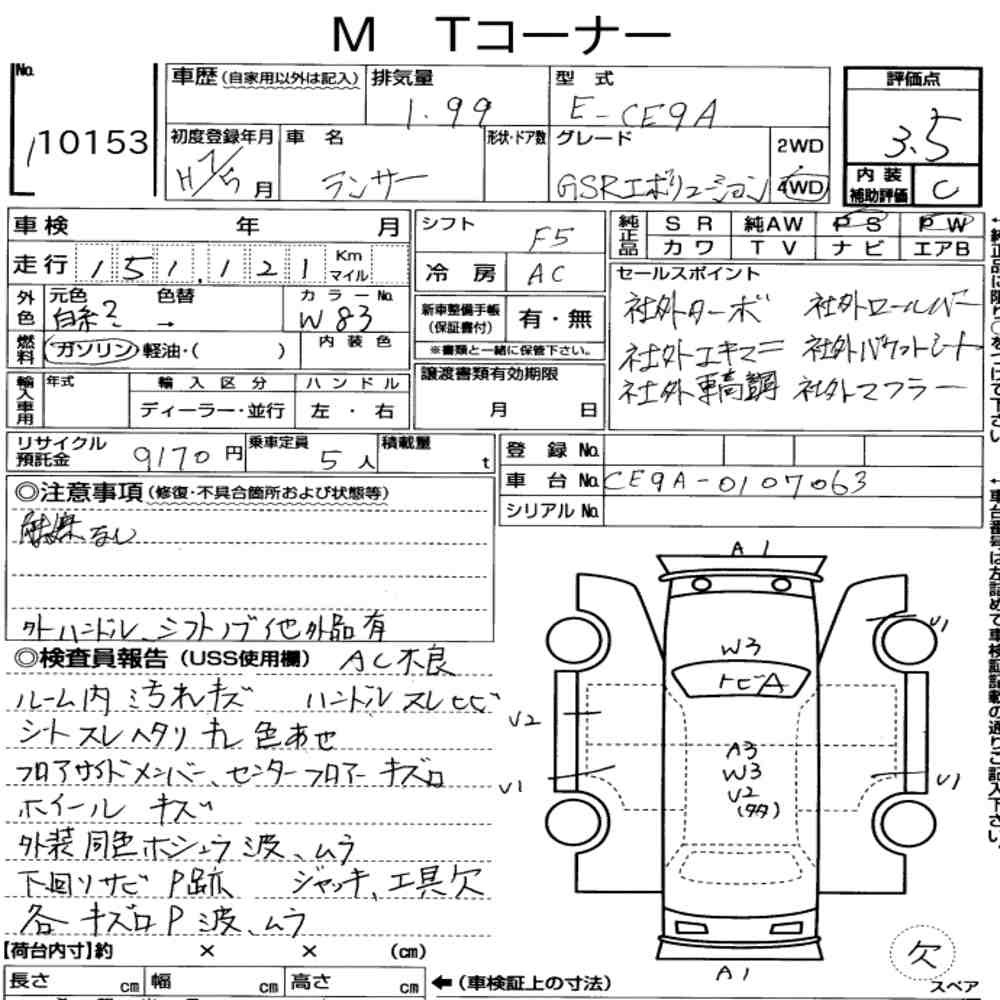 M Tコーナー
No. 10153
車歴(自家用以外は記入) 排気量 型式 評価点
1.99 E-CE9A 3.5
初度登録年月 車名 形状・ドア数 グレード 2WD
H7/5月 ランサー GSRエボリューション 4WD 内装補助評価 C
車検 年 月 シフト F5 純正品 SR 純AW PS PW
走行 151,121 Km マイル 冷房 AC カワ TV ナビ エアB
外色 元色 色替 カラーNo. 新車整備手帳(保証書付) 有・無 セールスポイント
白系2 → W83 社外ターボ 社外ロールバー
燃料 ガソリン・軽油・( ) 内装色 ※書類と一緒に保管下さい。 社外エキマニ 社外バケットシート
輸入車用 年式 輸入区分 ハンドル 譲渡書類有効期限 社外車高調 社外マフラー
ディーラー・並行 左・右 月 日
リサイクル預託金 9170円 乗車定員 5人 積載量 t 登録No.
車台No. CE9A-0107063
シリアルNo.
◎注意事項(修復・不具合箇所および状態等)
触媒なし
外ハンドル、シフトノブ他外品有
◎検査員報告(USS使用欄) AC不良
ルーム内汚れキズ ハンドルスレヒビ
シートスレヘタリキレ色あせ
フロアサイドメンバー、センターフロアーキズ凹
ホイールキズ
外装同色ホシュウ波、ムラ
下回りサビP跡 ジャッキ、工具欠
各キズ凹P波、ムラ
A1
V1
W3
トビA
V2
A3
W3
V2
(タタ)
V1
V1
A1
欠
スペア
【荷台内寸】約 × × (cm)
長さ cm 幅 cm 高さ cm ←(車検証上の寸法)
←純正品に限り○をつけて下さい。
←車台番号は左詰めて車検証記載の通りご記入下さい。